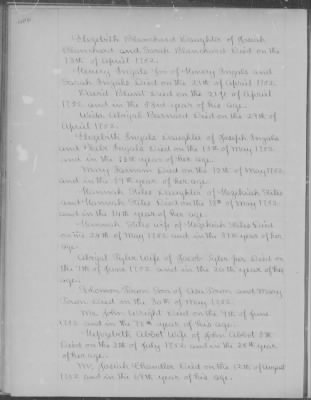 Elizabeth Blanchard Daughter of Josiah
Blanchard and Sarah Blanchard Died on the
13th of April 1752.
Henery Ingals Son of Henery Ingals and
Sarah Ingals Died on the 21st of April 1752.
David Blunt Died on the 21st of April
1752 and in the 53rd year of his age.
Widw Abigal Barnard Died on the 29th of
April 1752.
Elizabeth Ingals Daughter of Joseph Ingals
and Phebe Ingals Died on the 13th of May 1752
and in the year of her age.
Mary Farnum Died on the 12th of May 1752
and in the year of her age.
Hannah Stiles Daughter of Hezekiah Stiles
and Hannah Stiles Died on the 18th of May 1752
and in the 14th year of her age.
Hannah Stiles wife of Hezekiah Stiles Died
on the 24th of May 1752 and in the 37th year of her
age.
Abigal Tyler Wife of Jacob Tyler Jur Died on
the 7th of June 1752 and in the 20th year of her
age.
Solomon Town Son of Town and Mary
Town Died on the 30th of May 1752.
Mr. John Wright Died on the 9th of June
1752 and in the 75th year of his age.
Hephzibeth Abbot Wife of John Abbot 5th
Died on the 2th of July 1752 and in the 25th year
of her age.
Mr. Josiah Chandler Died on the 12th of August
1752 and in the 69th year of his age.